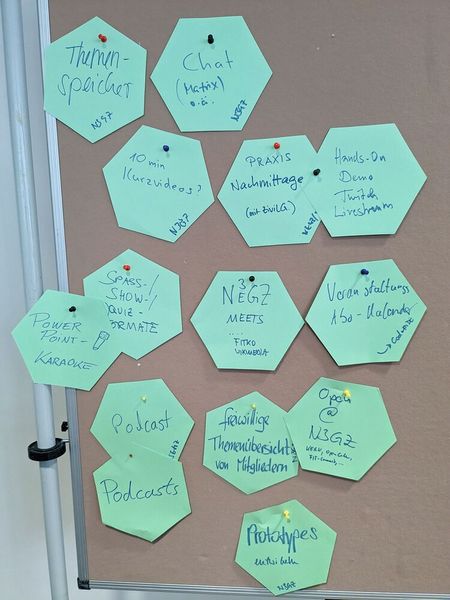 Themen-
speicher
N3GZ
Chat
(Matrix)
o.ä.
N3GZ
10 min
Kurzvideos?
N3GZ
PRAXIS
Nachmittage
(mit ZivilG.)
Hands-On
Demo
Twitch
Livestream
SPASS-/
SHOW-/
QUIZ-
FORMATE
POWER
POINT-
KARAOKE
3
NEGZ
MEETS
....
FITKO
WIKIMEDIA
Veranstaltungs
Abo-Kalender
Podcast
N3GZ
Podcasts
freiwillige
Themenübersicht
von Mitgliedern
N3GZ
Open
@
N3GZ
Prototypes
N3GZ